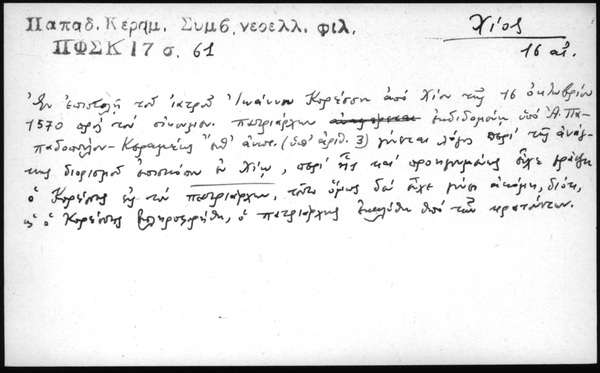 Παπαδ. Κεραμ. Συμβ. νεοελλ. φιλ. Χίος
ΠΦΣΚ 17 σ. 61 16 αἰ.
Ἐν ἐπιστολῇ τοῦ ἰατροῦ Ἰωάννου Κορέσση ἀπό Χίου τῆς 16 ὀκτωβρίου
1570 πρός τόν οἰκουμεν. πατριάρχην ἐκδιδομένῃ ὑπό Ἀ. Πα-
παδοπούλου-Κεραμέως ἔνθ' ἀνωτ. (ὑπ' ἀριθ. 3) γίνεται λόγος περί τῆς ἀνάγ-
κης διορισμοῦ ἐπισκόπου ἐν Χίῳ, περί ἧς καί προηγουμένως εἶχε γράψει
ὁ Κορέσσης εἰς τόν πατριάρχην, τοῦτο ὅμως δέν εἶχε γίνει ἀκόμη, διότι,
ὡς ὁ Κορέσσης ἐπληροφορήθη, ὁ πατριάρχης ἐκωλύθη ὑπό τῶν κρατούντων.